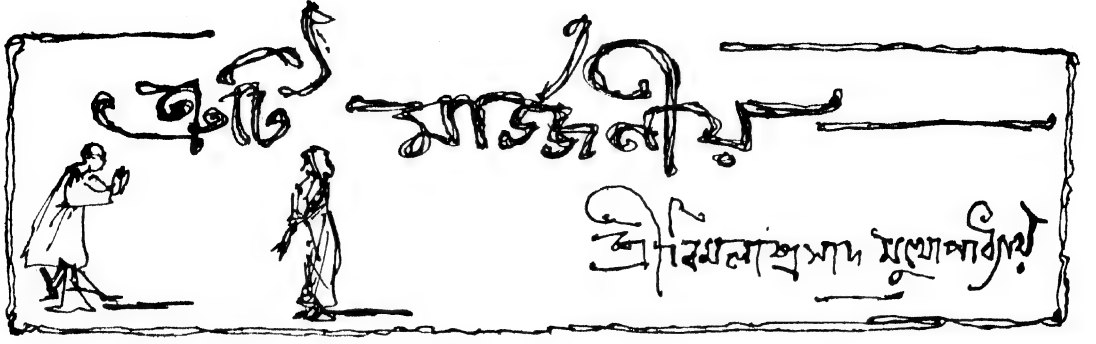 ত্রুটি মার্জ্জনীয়
শ্রীবিমলাপ্রসাদ মুখোপাধ্যায়